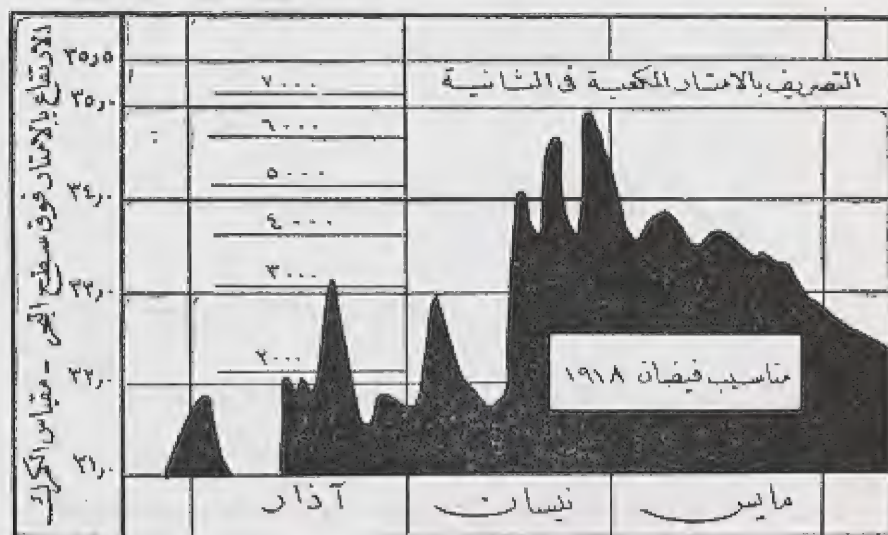 الارتفاع بالامتار فوق سطح البحر - مقياس الكرك
٣٥٫٥
٣٥٫٠
٣٤٫٠
٣٣٫٠
٣٢٫٠
٣١٫٠
التصريف بالامتار المكعبة في الثانية
٧٠٠٠
٦٠٠٠
٥٠٠٠
٤٠٠٠
٣٠٠٠
٢٠٠٠
مناسيب فيضان ١٩١٨
آذار
نيسان
مايس